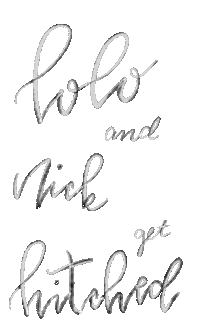 lolo
and
nick
get
hitched